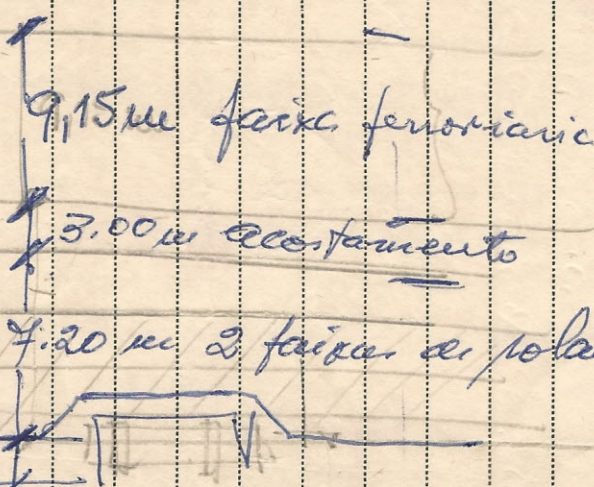 9,15 m faixa ferroviaria
3.00 m acostamento
7.20 m 2 faixas de rola